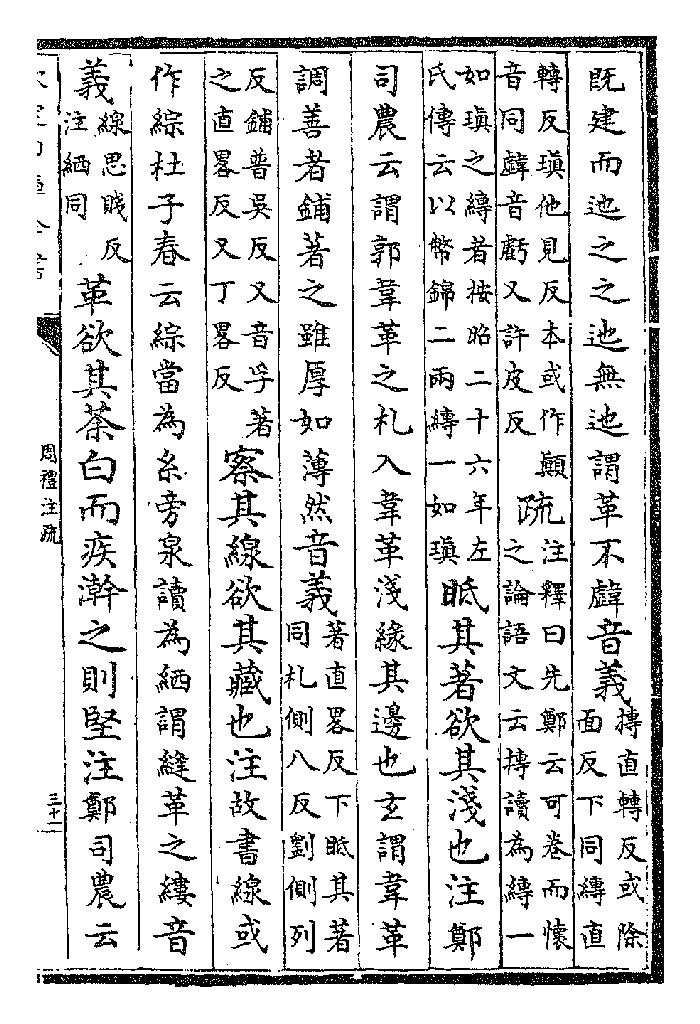 既建而迆之之迆無迆謂革不 音義
摶直轉反或除
面反下同縳直
轉反瑱他見反本或作顛
音同 音虧又許皮反
疏
注釋曰先鄭云可卷而懷
之論語文云摶讀為縳一
如瑱之縳者按昭二十六年左
氏傳云以幣錦二兩縳一如瑱
眡其著欲其淺也注鄭
司農云謂郭韋革之札入韋革淺緣其邊也玄謂韋革
調善者鋪著之雖厚如薄然音義
著直畧反下眡其著
同札側八反劉側列
反鋪普吳反又音孚著
之直畧反又丁畧反
察其線欲其藏也注故書線或
作綜杜子春云綜當為糸旁泉讀為絤謂縫革之縷音
義
線思賤反
注絤同
革欲其荼白而疾澣之則堅注鄭司農云
周禮注疏